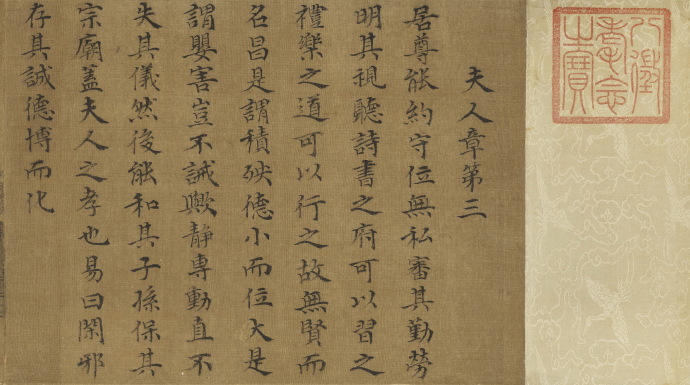 八徵
耄念
之寶
夫人章第三
居尊能約守位無私審其勤勞
明其視聽詩書之府可以習之
禮樂之道可以行之故無賢而
名昌是謂積殃德小而位大是
謂嬰害豈不誡歟靜專動直不
失其儀然後能和其子孫保其
宗廟蓋夫人之孝也易曰閑邪
存其誠德博而化